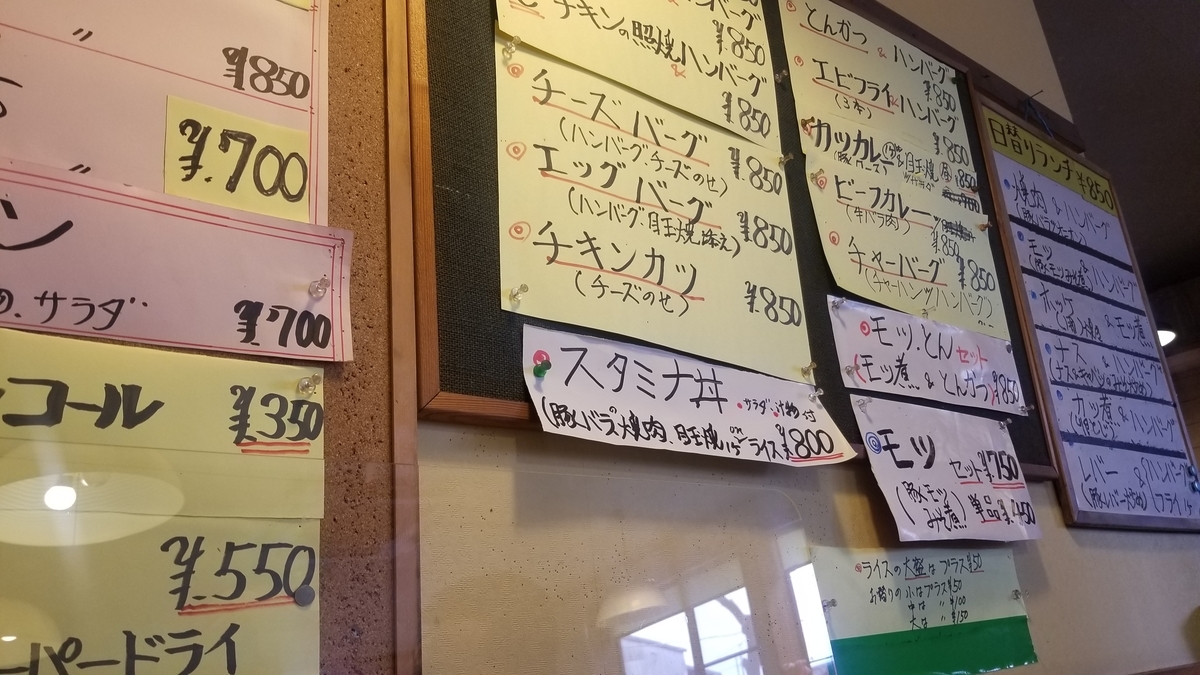 〃
¥850
¥700
〃
ン
の.サラダ
¥700
コール
¥350
¥.550
ーパードライ
¥850
チキンの照焼&ハンバーグ
¥850
チーズバーグ
(ハンバーグ.チーズのせ)
¥850
エッグバーグ
(ハンバーグ.目玉焼添え)
¥850
チキンカツ
(チーズのせ)
¥850
スタミナ丼
サラダ.汁物付
(豚バラ焼肉.目玉焼onライス
¥800
とんかつ & ハンバーグ
¥850
エビフライ&ハンバーグ
(3本)
¥850
カツカレー
(豚ロース)
¥850
ビーフカレー
(牛バラ肉)
¥850
チャーバーグ
(チャーハン/ハンバーグ)
¥850
モツ.とんセット
(モツ煮 & とんかつ)¥850
モツ
セット¥750
(豚モツみそ煮)
単品¥450
ライスの大盛はプラス¥50
お替りの小はプラス¥50
中は 〃 ¥100
大は 〃 ¥150
日替りランチ¥850
焼肉 & ハンバーグ
モツ & ハンバーグ
(豚モツみそ煮)
ホッケ & モツ煮
ナス & ハンバーグ
カツ煮 & ハンバーグ
レバー & ハンバーグ